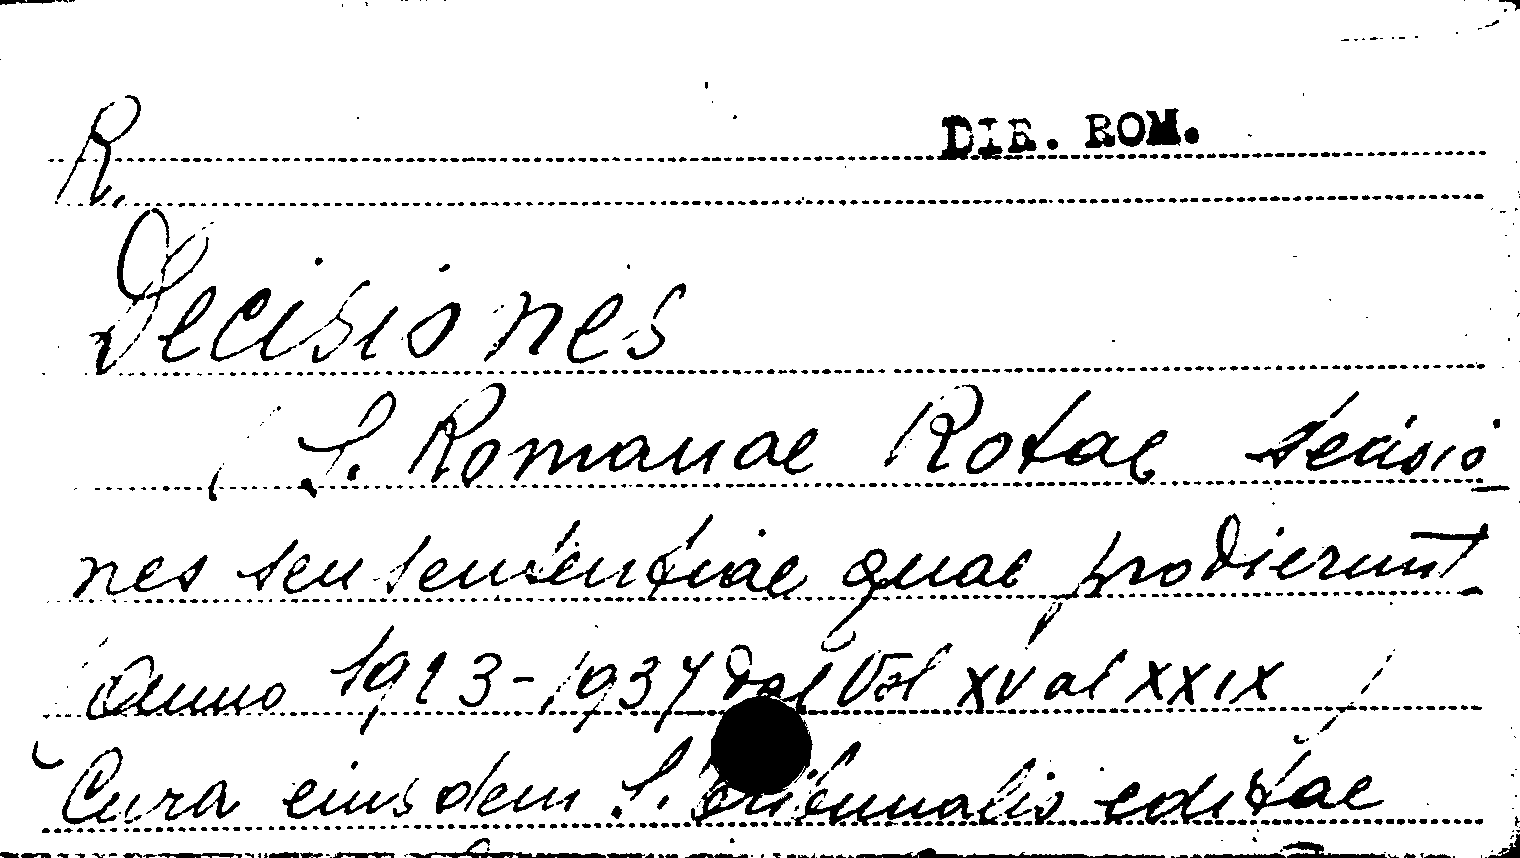 R.
DIR. ROM.
Decisiones
( S. Romanae Rotae decisio
nes seu sententiae quae prodierunt
Anno 1923-1937 dal Vol XV al XXIX )
Cura eiusdem S. Tribunalis editae